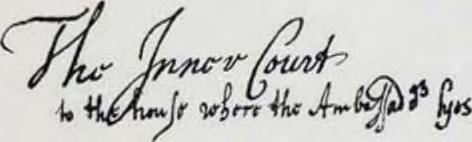 The Inner Court
to the house where the Ambassadrs lyes